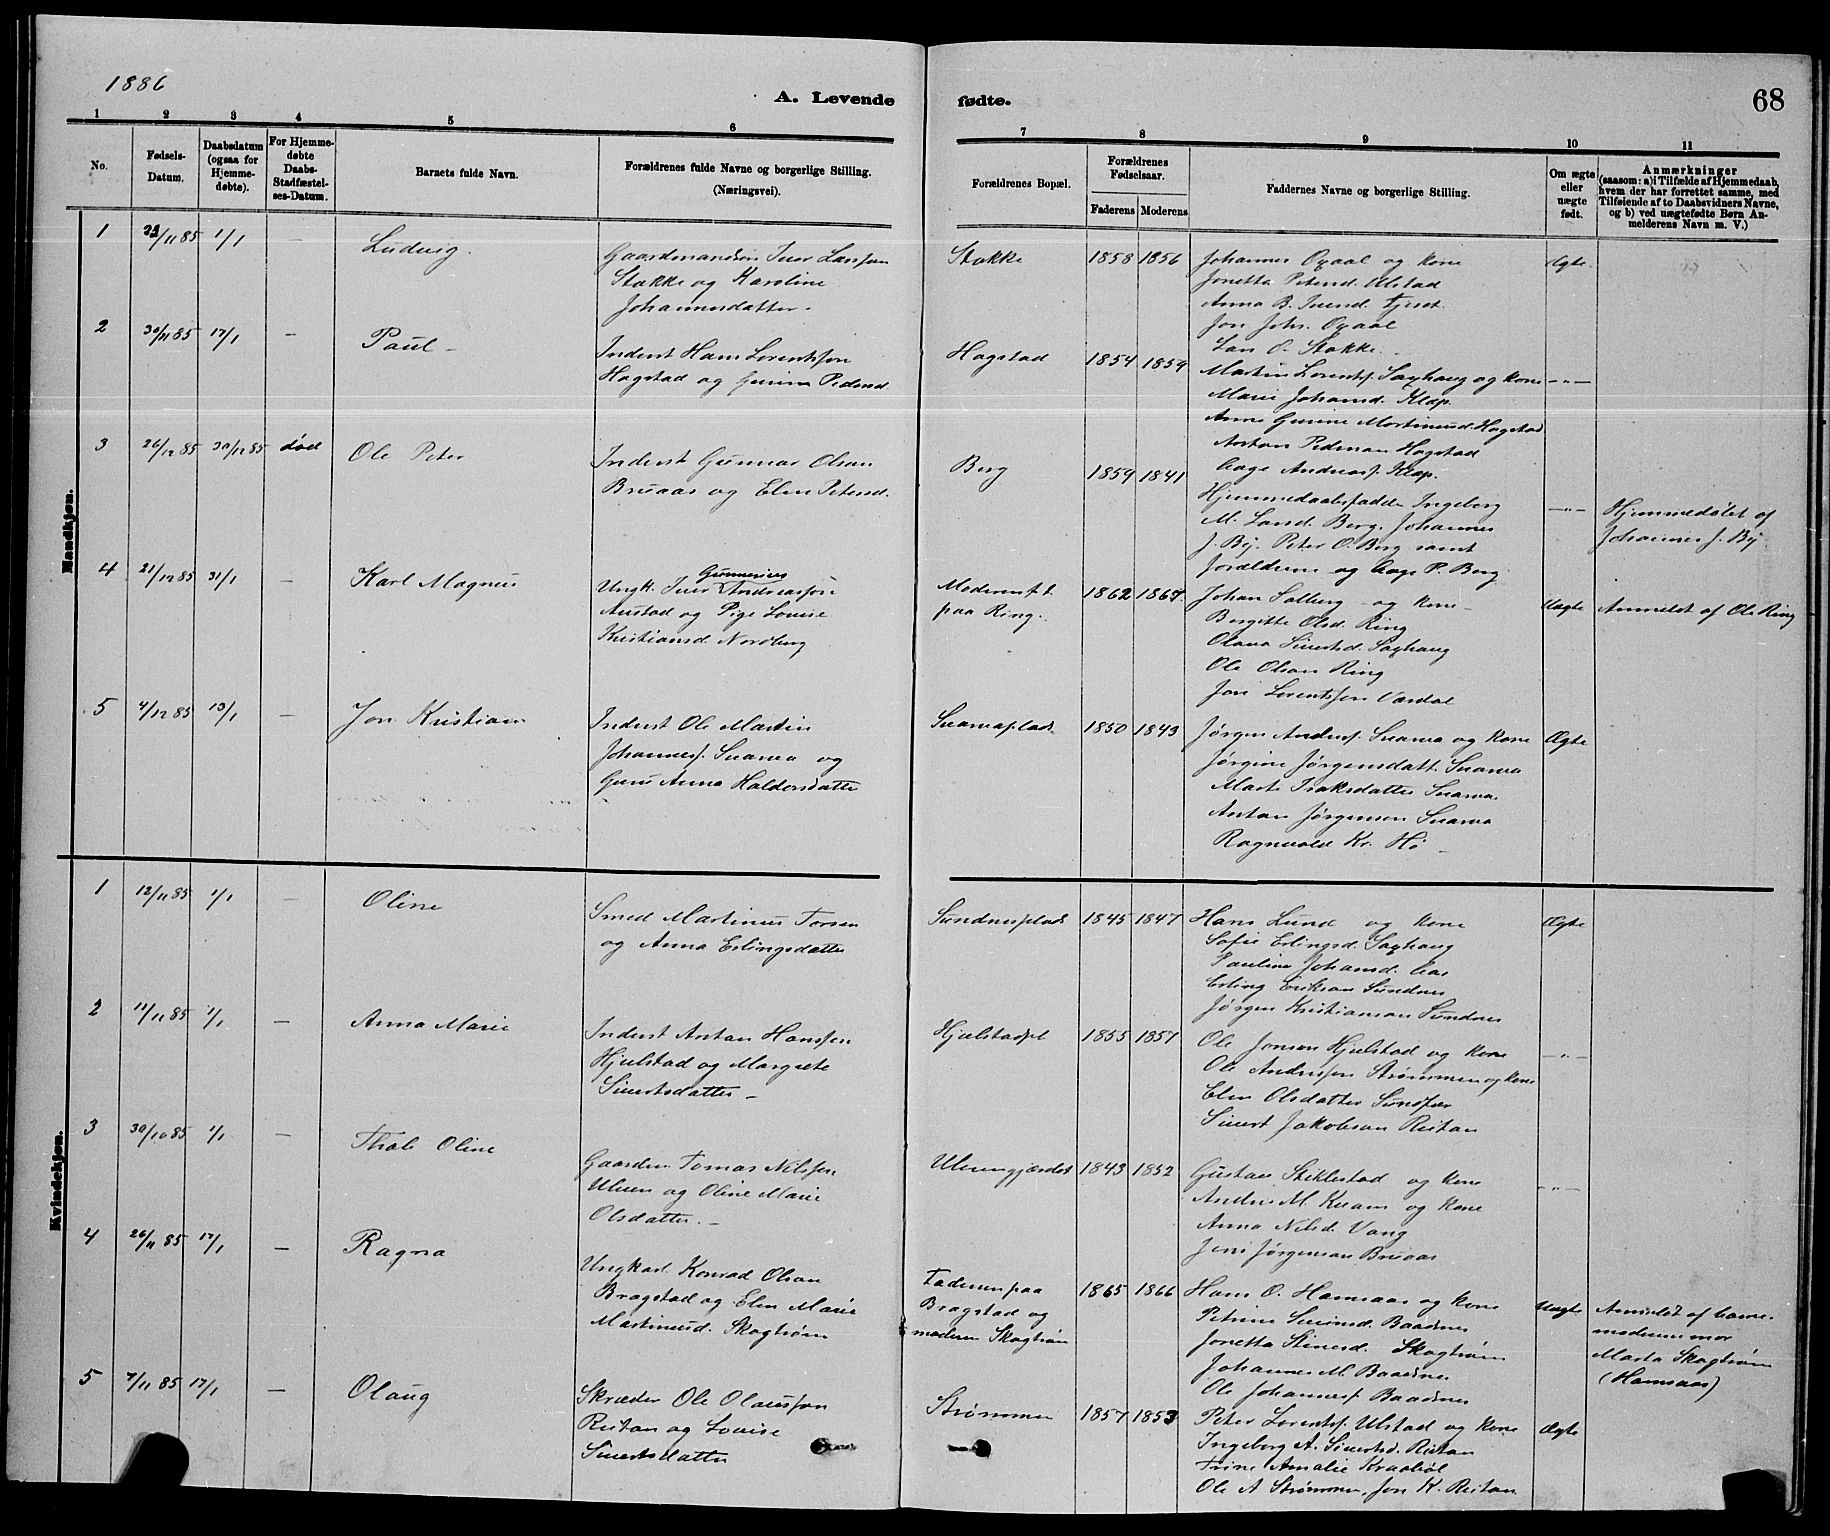 1886
A. Levende
fødte.
68
1
2
3
4
5
6
7
8
9
10
11
No.
Fødsels-
Datum.
Daabsdatum
(ogsaa for
Hjemme-
døbte).
For Hjemme-
døbte
Daabs-
Stadfæstel-
ses-Datum.
Barnets fulde Navn.
Forældrenes fulde Navne og borgerlige Stilling.
(Næringsvei).
Forældrenes Bopæl.
Forældrenes
Fødselsaar.
Faderens
Moderens
Faddernes Navne og borgerlige Stilling.
Om ægte
eller
uægte
født.
Anmærkninger
(saasom: a) i Tilfælde af Hjemmedaab,
hvem der har forrettet samme, med
Tilføiende af to Daabsvidners Navne,
og b) ved uægtefødte Børn An-
melderens Navn m. V.)
Mandkjøn.
1 23/11 85 1/1 — Ludvig.
Gaardmandsøn Iver Larssøn
Stokke og Karoline
Johannesdatter.
Stokke 1858 1856
Johannes Opaal og kone
Jonetta Petersd. Ulstad
Anna B. Iversd.
Jon Johs. Opaal
Lars O. Stokke.
Ægte.
2 30/11 85 17/1 — Paul —
Inderst Hans Lorentssøn
Hagstad og Pedersd
Hagstad 1854 1859
Martin Lorentsf. Saxhaug og kone
Marie Johansd. Klæp.
Anne Martinusd. Hagstad
Anton Pedersen Hagstad
Aage Andreasf. Klæp.
—"—
3 26/12 85 30/12 85 død Ole Peter
Inderst Gunnar Olsen
Bruaas og Elen Petersd.
Berg 1859 1841
Hjemmedaabsfaddere Ingeborg
M. Larsd. Berg. Johannes
J. By. Peter O. Berg samt
Forældrene og Aage P. Berg
—"—
Hjemmedøbt af
Johannes J. By
4 21/12 85 31/1 — Karl Magnus
Ungk. Iver Andreassøn
Austad og Pige Lovise
Kristiansd. Nordberg
Moderen
paa Ring. 1862
Johan Solberg og kone
Birgitte Olsd. Ring
Olava Sivertsd. Saxhaug
Ole Olsen Ring
Jon Lorentssøn Værdal
Uægte
Anmeldt af Ole Ring
5 4/12 85 13/1 — Jon Kristian
Inderst Ole Martin
Johannesf. Snarva og
Guru Anna Haldorsdatter
1850 1843
Jørgen Andersf. Snarva og kone
Jørgine Jørgensdatt. Snarva
Marte Isaksdatter Snarva.
Anton Jørgensen Snarva
Ragnvald Kr. Hø —
Ægte
Kvindekjøn.
1 12/11 85 1/1 — Oline
Smed Martinus Torsen
og Anna Erlingsdatter
Sundnesplads 1845 1847
Hans Lund og kone
Sofie Erlingsd. Saxhaug
Pauline Johansd. Aas
Erling Eriksen Sundnes
Jørgen Kristiansen Sundnes
Ægte
2 12/11 85 1/1 — Anna Marie
Inderst Anton Hanssøn
Hjelstad og Margrete
Sivertsdatter —
Hjelstadpl 1855 1857
Ole Jonsen Hjelstad og kone
Ole Anderssøn Strømmen og kone
Elen Olsdatter
Sivert Jakobsen Reitan
—"—
3 30/10 85 1/1 — Oline
Gaardm Tomas Nilssøn
Ulven og Oline Marie
Olsdatter. —
Ulvengjerdet 1843 1852
Gustav Stiklestad og kone
Andreas M. Kvam og kone
Anna Nilsd. Vang
Jens Jørgensen Bruaas
—"—
4 26/11 85 17/1 — Ragna
Ungkarl Konrad Olsen
Bragstad og Elen Marie
Martinusd. Skogtrøen
Faderen paa
Bragstad og
moderen Skogtrøen
1865 1866
Hans O. Hamsaas og kone
Petrine Baadsnes
Jonetta Skogtrøen
Johannes M. Baadsnes
Ole Johannesf. Baadsnes
Uægte
Anmeldt af barne-
moderens mor
Marta Skogtrøen
(Hamsaas)
5 7/11 85 17/1 — Olaug
Skræder Ole Olaussøn
Reitan og Lovise
Sivertsdatter
Strømmen 1857 1853
Peter Lorentsf. Ulstad og kone
Ingeborg A. Sivertsd. Reitan
Trine Amalie Kraabøl
Ole A Strømmen, Jon K. Reitan
Ægte